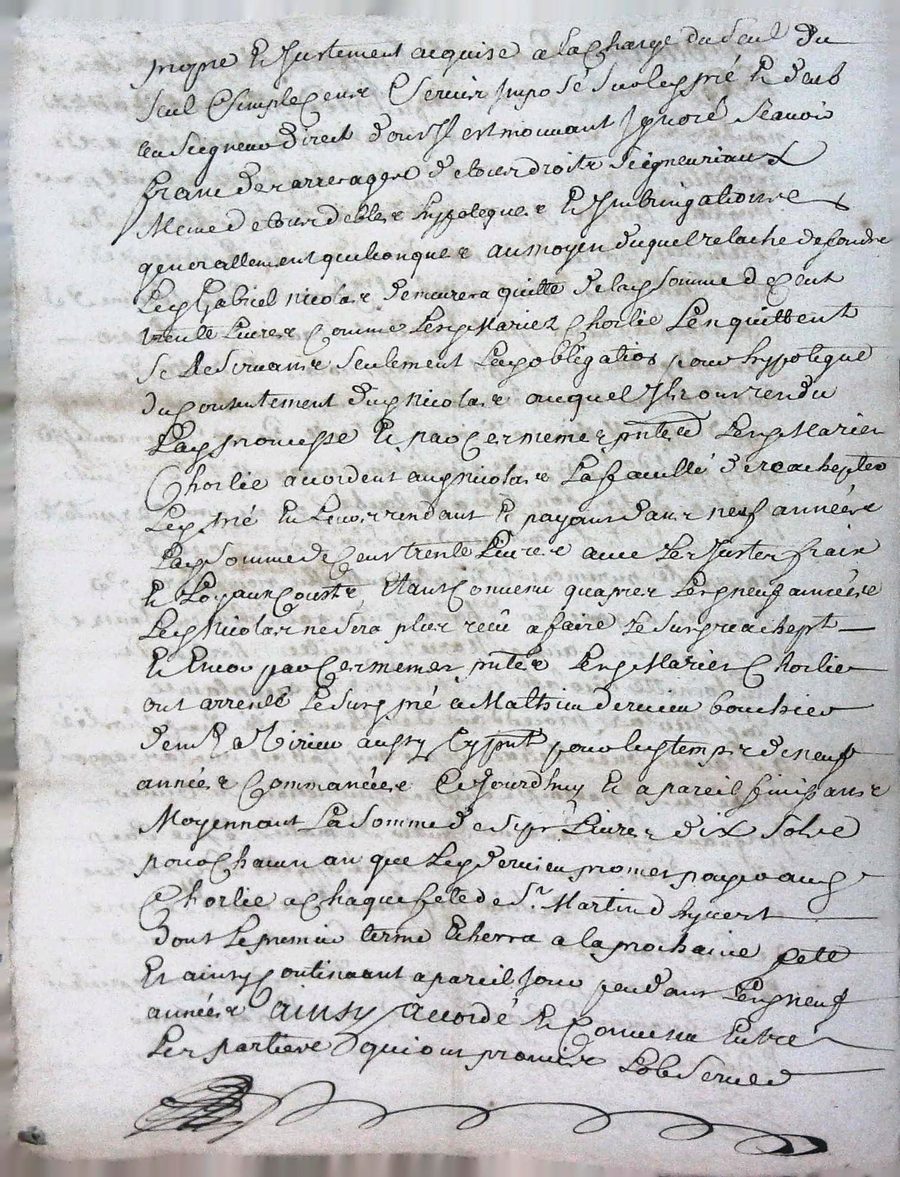 propre et Justement acquise a la Charge du seul du
seul et simple Cens et servis Imposé sur led pré et deub
au seigneur direct dont Il est mouvant Ignoré seavoir
franc de arrerages d et ses droits seigneuriaux
Mesme de debtes hypoteques et Imbringations
generallement quelconques au moyen duquel relache de fondz
Led Gabriel nicolas demeurera quitte de lad somme de Cent
trente Livres Comme Lesd Mariez Chorlie Len quittent
se Reservants seulement Lad obligation pour hypoteque
du Consentement dud nicolas auquel Ils ont rendu
Lad promesse Et par Ces mesmes pntes Lesd Mariez
Chorlie accordent aud nicolas La faculté de reachepter
Led pré En Leur rendant Et payant dans neuf années
Lad somme de Cent trente Livres avec Les Justes frais
Et Loyaux Cousts Etant Convenu quapres Lesd neuf années
Led Nicolas ne sera plus recû a faire Le susd reachept
Et Encor par Ces mesmes pntes Lesd Mariez Chorlie
ont arrenté Le susd pré a Mathieu dervieu bouchier
aussy Cy pnt pour Le temps de neuf
années Commancées Cejourdhuy Et a pareil finissants
Moyennant La somme de sept Livres dix sols
pour Chacun an que Led dervieu promet payer aud
Chorlie a Chaque fete de St Martin d hyvert
dont Le premier terme Echerra a la prochaine fete
Et ainsy Continuant a pareil Jour pendant Lesd neuf
années ainsy accordé Et Convenu Entre
Les parties qui ont promis Lobserver